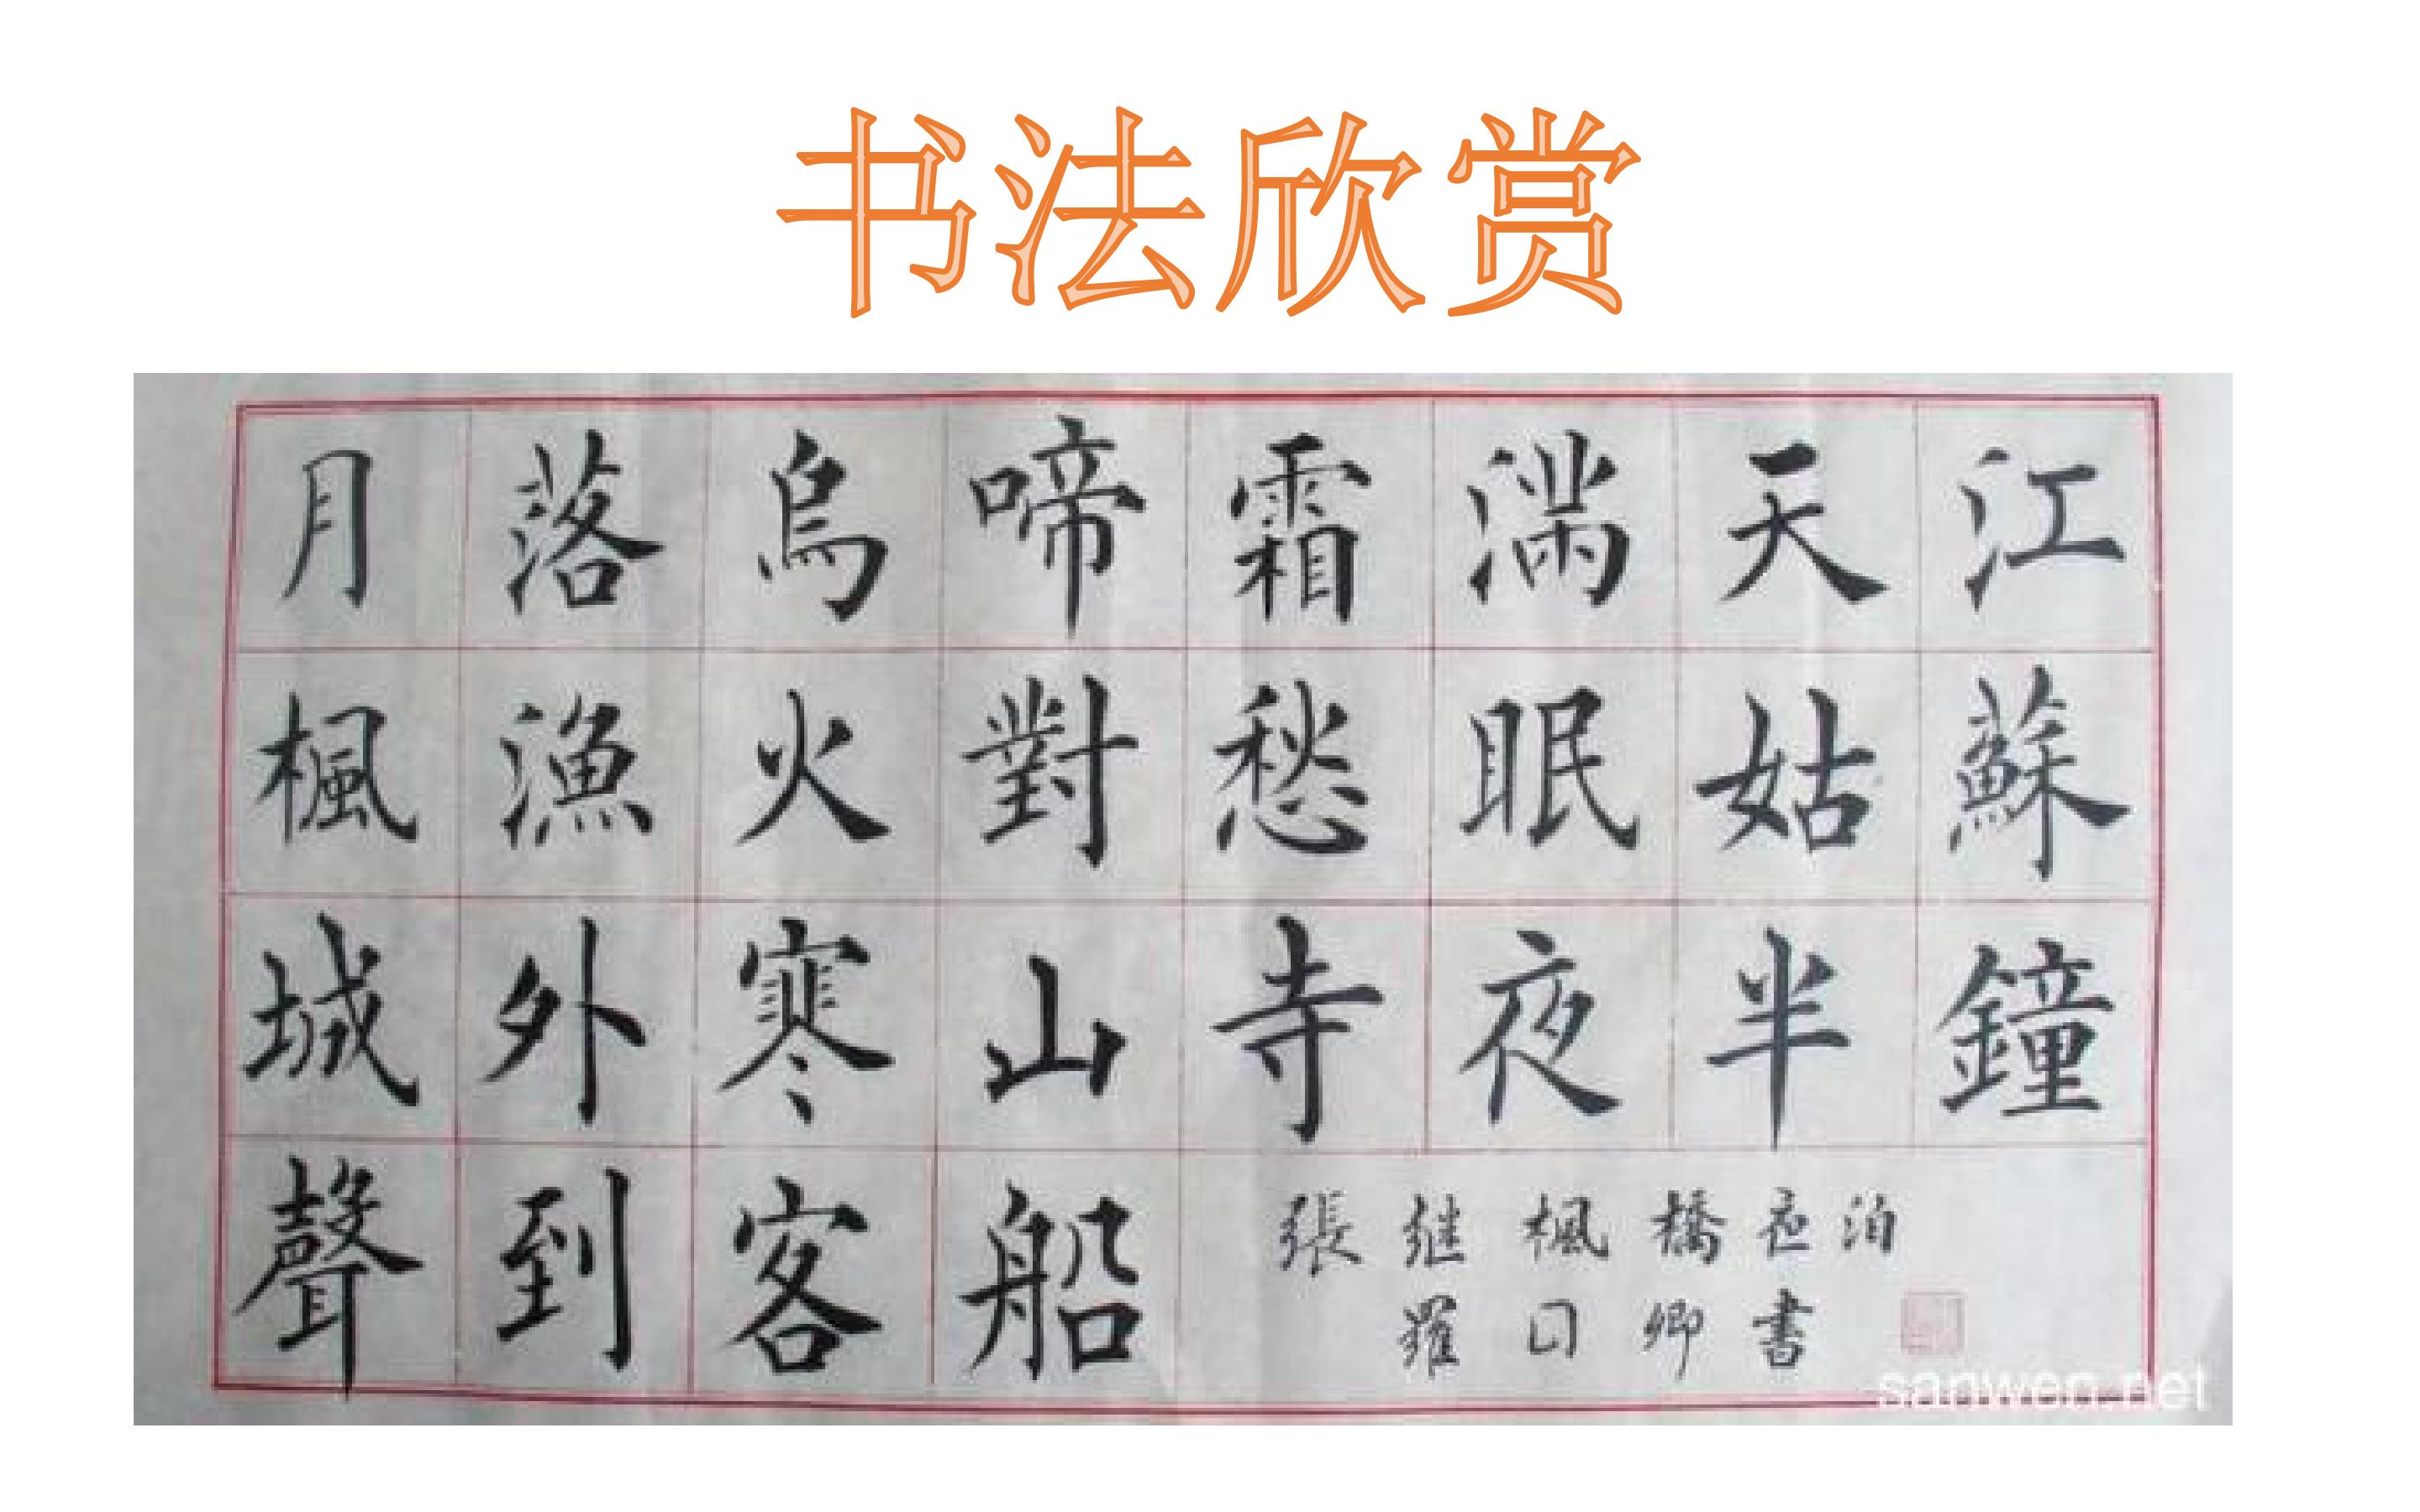 书法欣赏
月落烏啼霜滿天江
楓漁火對愁眠姑蘇
城外寒山寺夜半鐘
聲到客船
張继楓橋夜泊
羅卿書
sanwen.net